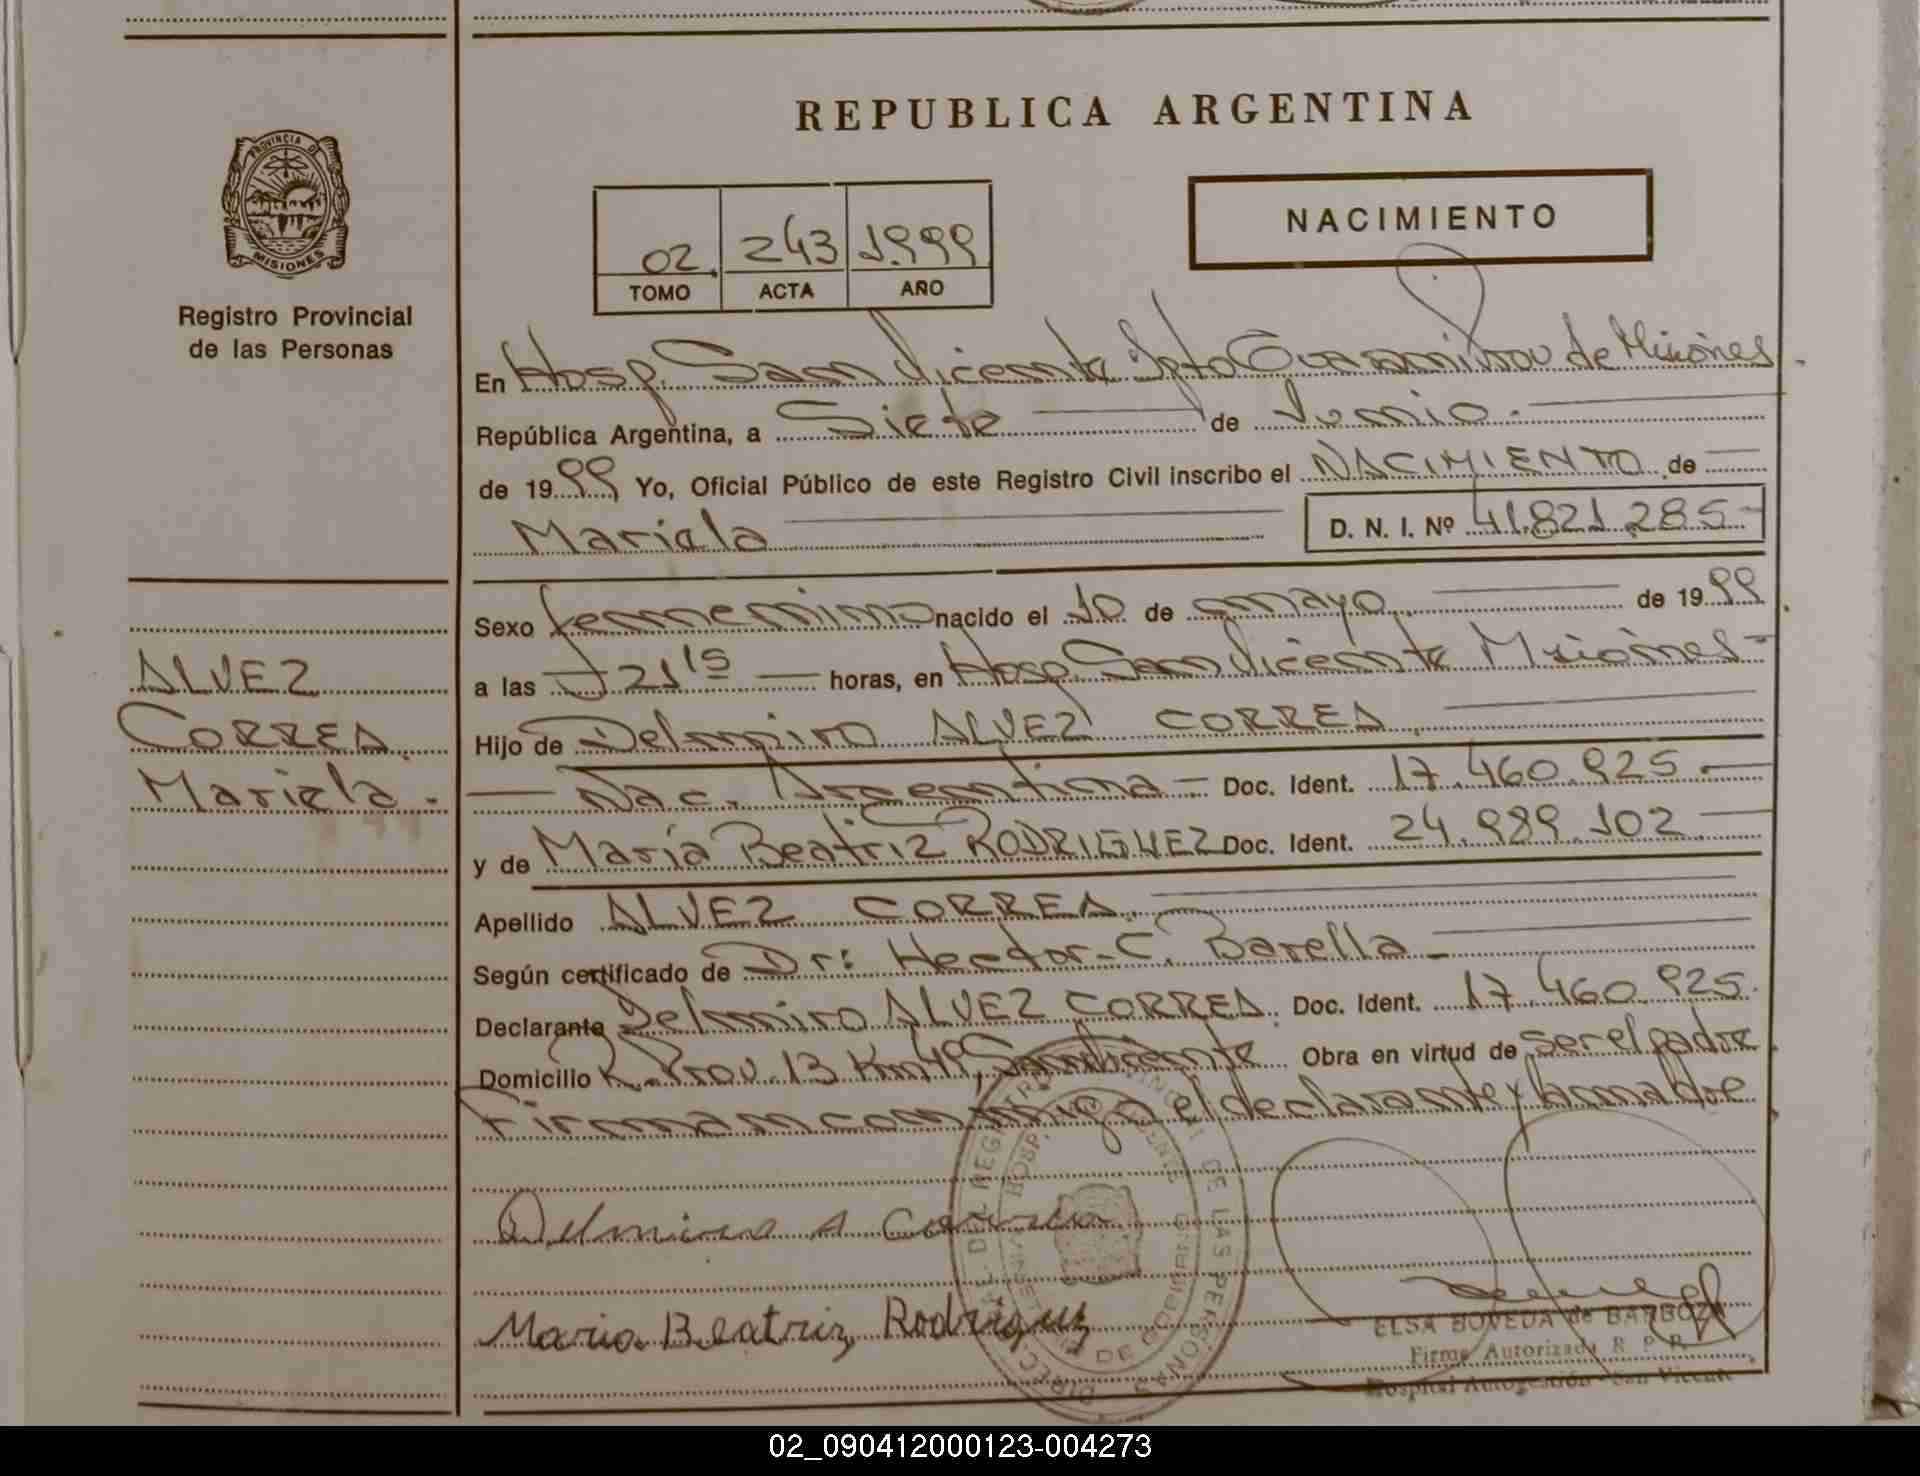 REPUBLICA ARGENTINA
PROVINCIA DE
MISIONES
Registro Provincial
de las Personas
02 243 1999
TOMO ACTA AÑO
NACIMIENTO
En Hosp. San Vicente Dpto Guaraní Prov de Misiones
República Argentina, a Siete de Junio
de 1999 Yo, Oficial Público de este Registro Civil inscribo el NACIMIENTO de
Mariela D. N. I. Nº 41.821.285
Sexo femenino nacido el 10 de mayo de 1999
a las 21 15 horas, en Hosp. San Vicente Misiones
Hijo de Delmiro ALVEZ CORREA
Nac. Argentina Doc. Ident. 17.460.925
y de María Beatriz RODRIGUEZ Doc. Ident. 24.989.102
Apellido ALVEZ CORREA
Según certificado de Dr: Hector C. Barella
Declarante Delmiro ALVEZ CORREA Doc. Ident. 17.460.925
Domicilio R. Prov. 13 Km 49, San Vicente Obra en virtud de ser el padre
Firman conmigo el declarante y la madre
ALVEZ
CORREA
Mariela
Delmiro A Correa
Maria Beatriz Rodriguez
ELSA BOVEDA de BARBOZA
Firma Autorizada R. P. P.
Hospital Autogestión - San Vicente
02_090412000123-004273